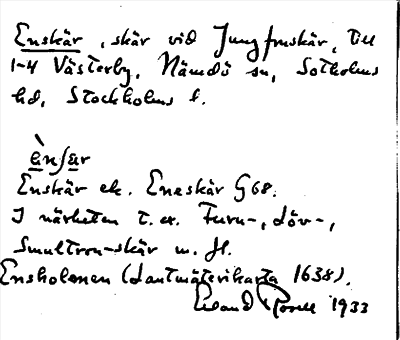 Enskär, skär vid Jungfruskär, till
1-4 Västerby, Nämdö sn, Sotholms
hd, Stockholms l.
ènʃar
Enskär ek. Eneskär G 68.
I närheten t. ex. Furu-, Löv-,
Smultron-skär m. fl.
Ensholmen (Lantmäterikarta 1638).
Rosell 1933